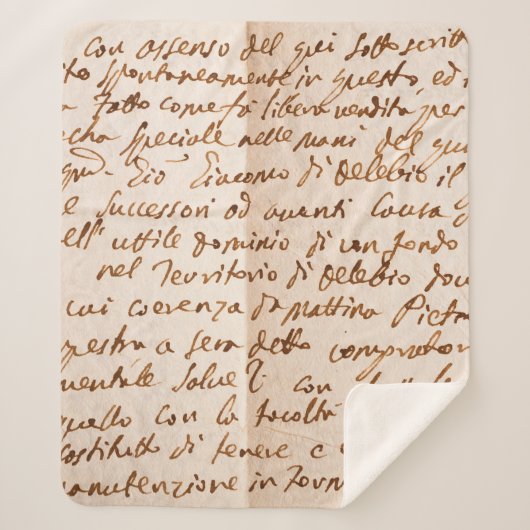 con assenso del qui sottoscritt
ito spontaneamente in questo, ed i
a fatto come fà libera vendita per
speciale nelle mani del qu
qm. Gio Giacomo di Delebio il
e successori ed aventi causa
ell'uttile dominio di un fondo
nel Territorio di Delebio do
cui coerenza da mattina Piet
a sera detto comprator
mentale salve con
quello con la facoltà
costituto di tenere e
manutenzione in form